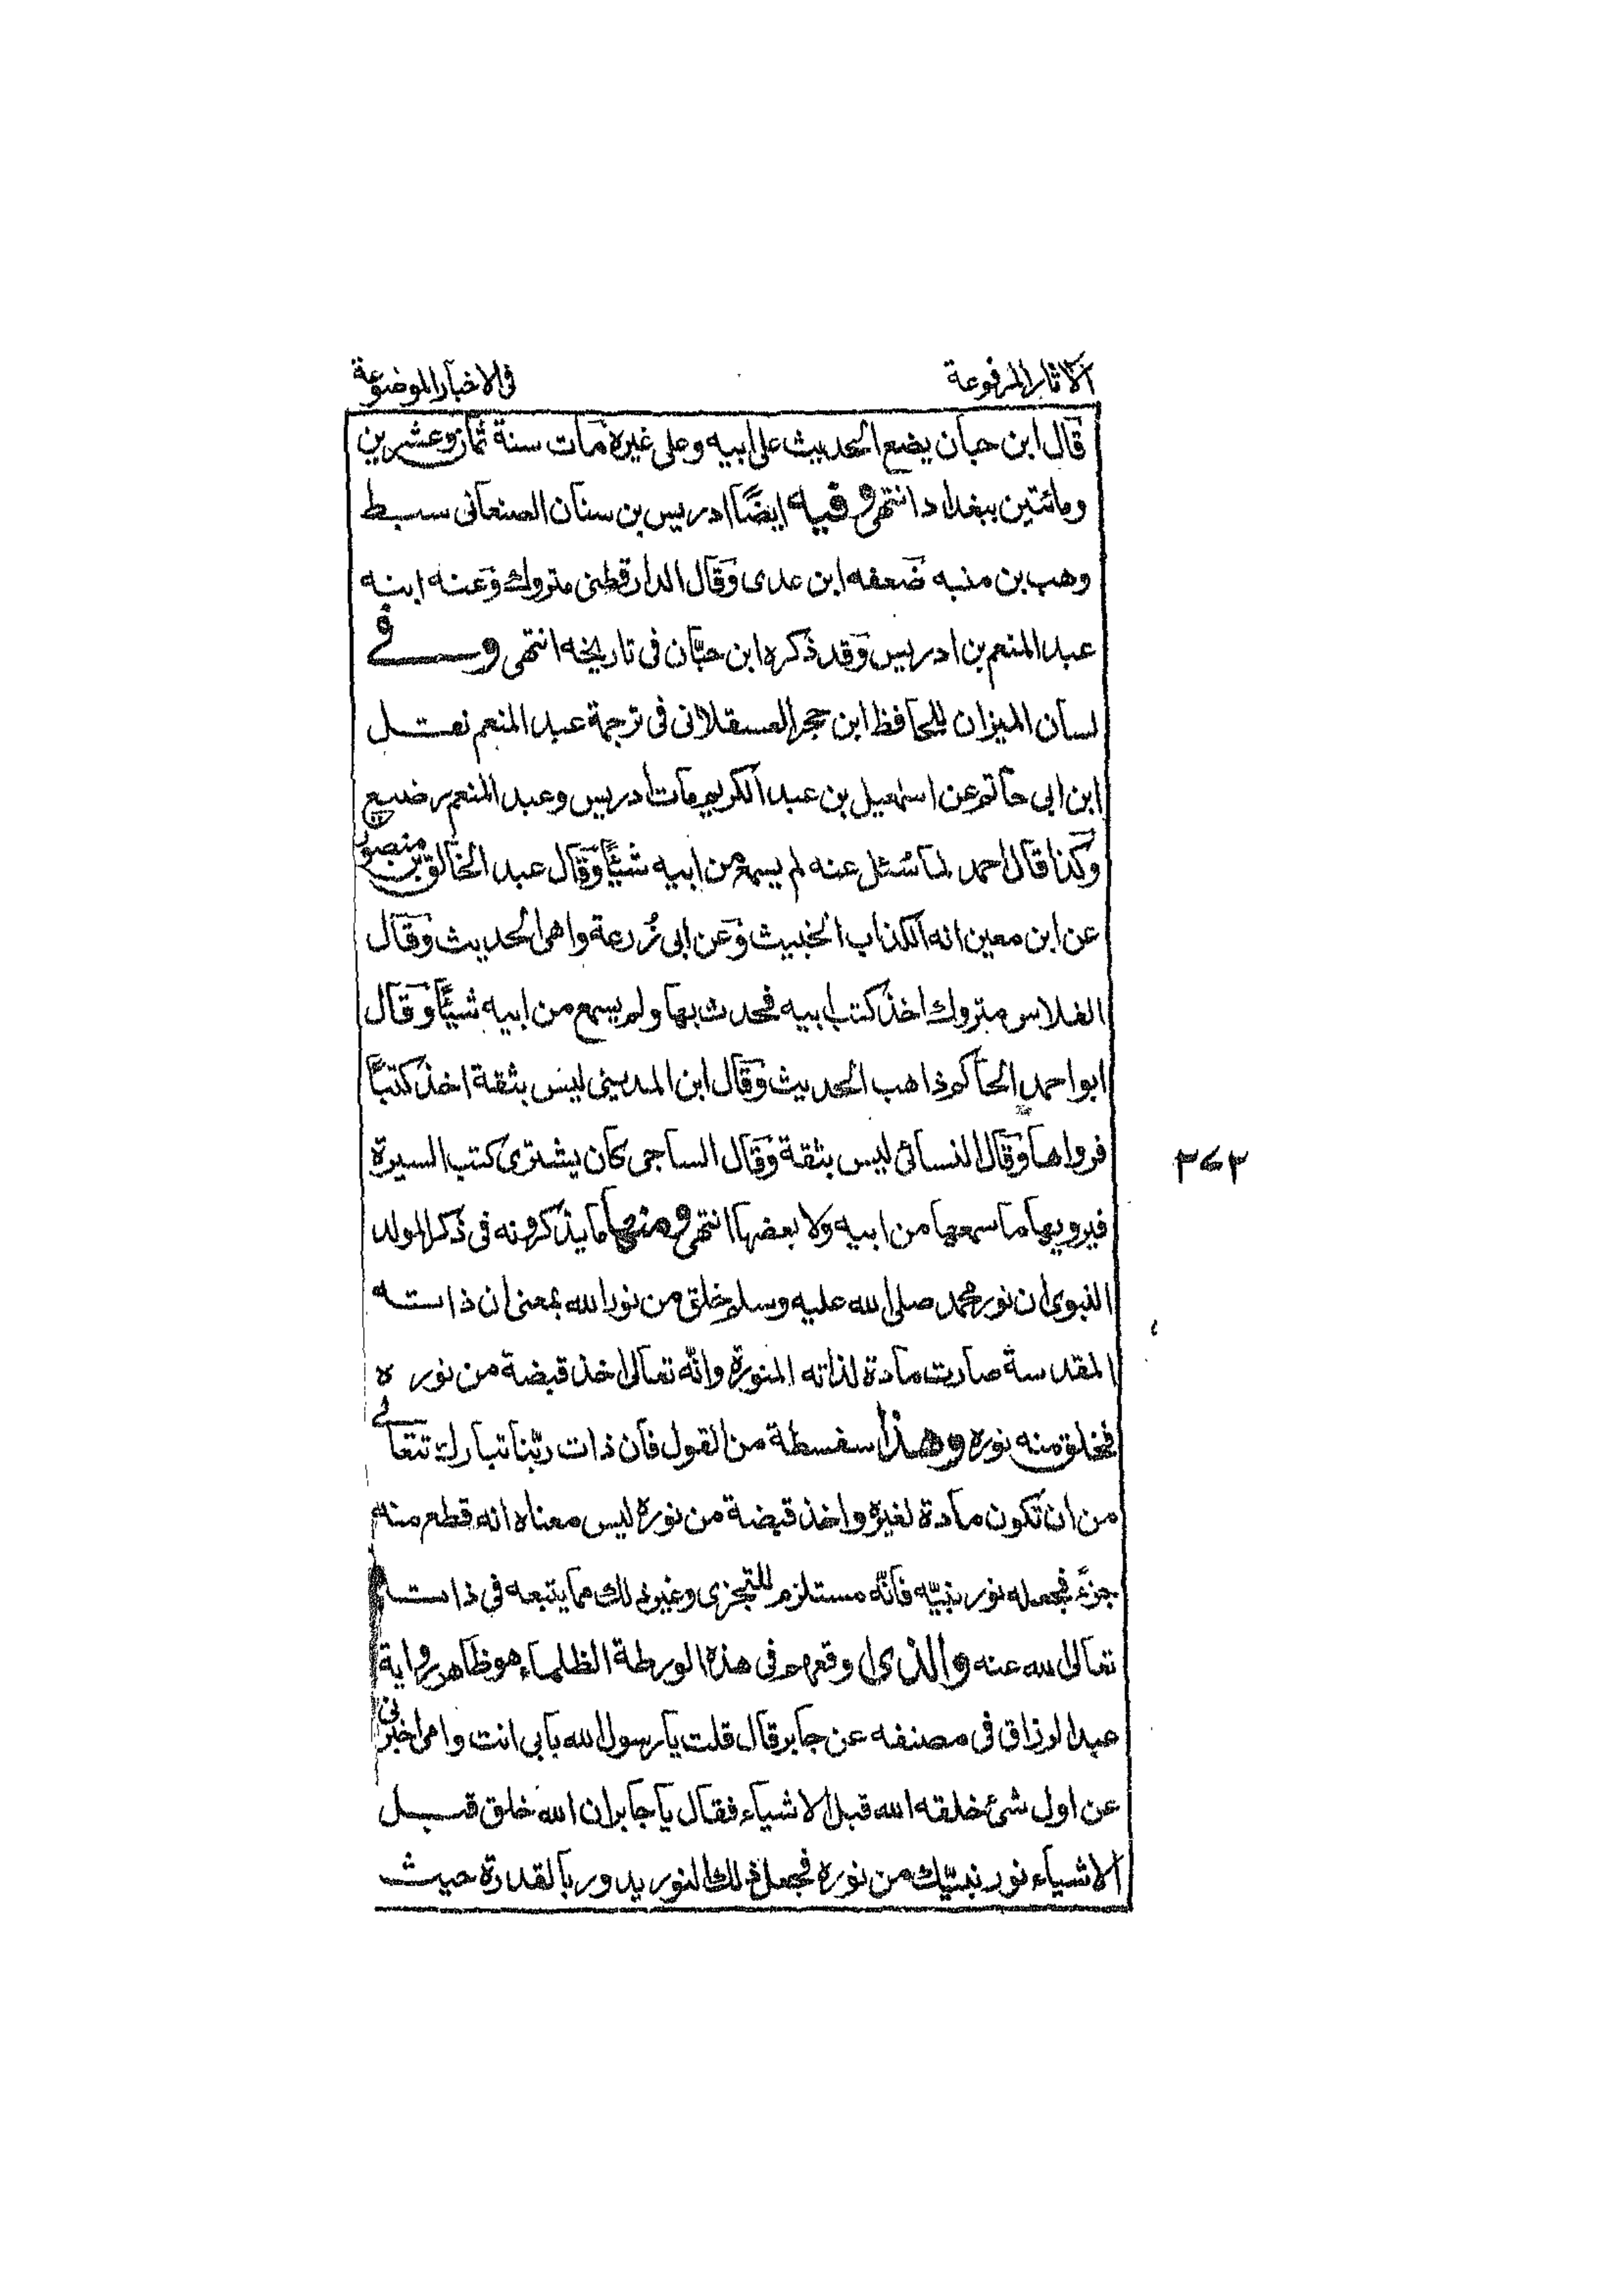 الآثار المرفوعة
فی الاخبار الموضوعة
قال ابن حبان یضع الحدیث علی ابیه وعلی غیره مات سنة ثمان وعشرین
ومائتین ببغداد انتهی وفیه ایضًا ادریس بن سنان الصنعانی سبط
وهب بن منبه ضعفه ابن عدی وقال الدارقطنی متروك وعنه ابنه
عبد المنعم بن ادریس وقد ذکره ابن حبّان فی تاریخه انتهی وفی
لسان المیزان للحافظ ابن حجر العسقلانی فی ترجمة عبد المنعم نقل
ابن ابی حاتم عن اسمعیل بن عبد الکریم مات ادریس وعبد المنعم رضیع
وکذا قال احمد لما سُئل عنه لم یسمع من ابیه شیئًا وقال عبد الخالق بن منصور
عن ابن معین انه الکذاب الخبیث وعن ابی زُرعة واهی الحدیث وقال
الفلاس متروك اخذ کتب ابیه فحدث بها ولم یسمع من ابیه شیئًا وقال
ابو احمد الحاکم ذاهب الحدیث وقال ابن المدینی لیس بثقة اخذ کتبًا
فرواها وقال النسائی لیس بثقة وقال الساجی کان یشتری کتب السیرة
فیرویها ما سمعها من ابیه ولا بعضها انتهی ومنها ما یذکرونه فی ذکر المولد
النبوی ان نور محمد صلی الله علیه وسلم خلق من نور الله بمعنی ان ذاته
المقدسة صارت مادة لذاته المنورة وانّه تعالی اخذ قبضة من نوره
فخلق منه نوره وهذا سفسطة من القول فان ذات ربّنا تبارك تعالی
من ان تکون مادة لغیره واخذ قبضة من نوره لیس معناه انه قطع منه
جزءً فجعله نور نبیّه فانّه مستلزم للتجزی وغیر ذلك مما یتبعه فی ذاته
تعالی الله عنه والذی اوقعهم فی هذه الورطة الظلماء هو ظاهر روایة
عبد الرزاق فی مصنفه عن جابر قال قلت یا رسول الله بابی انت وامی اخبرنی
عن اول شیٔ خلقه الله قبل الاشیاء فقال یا جابر ان الله خلق قبل
الاشیاء نور نبیّك من نوره فجعل ذلك النور یدور بالقدرة حیث
۳۷۲